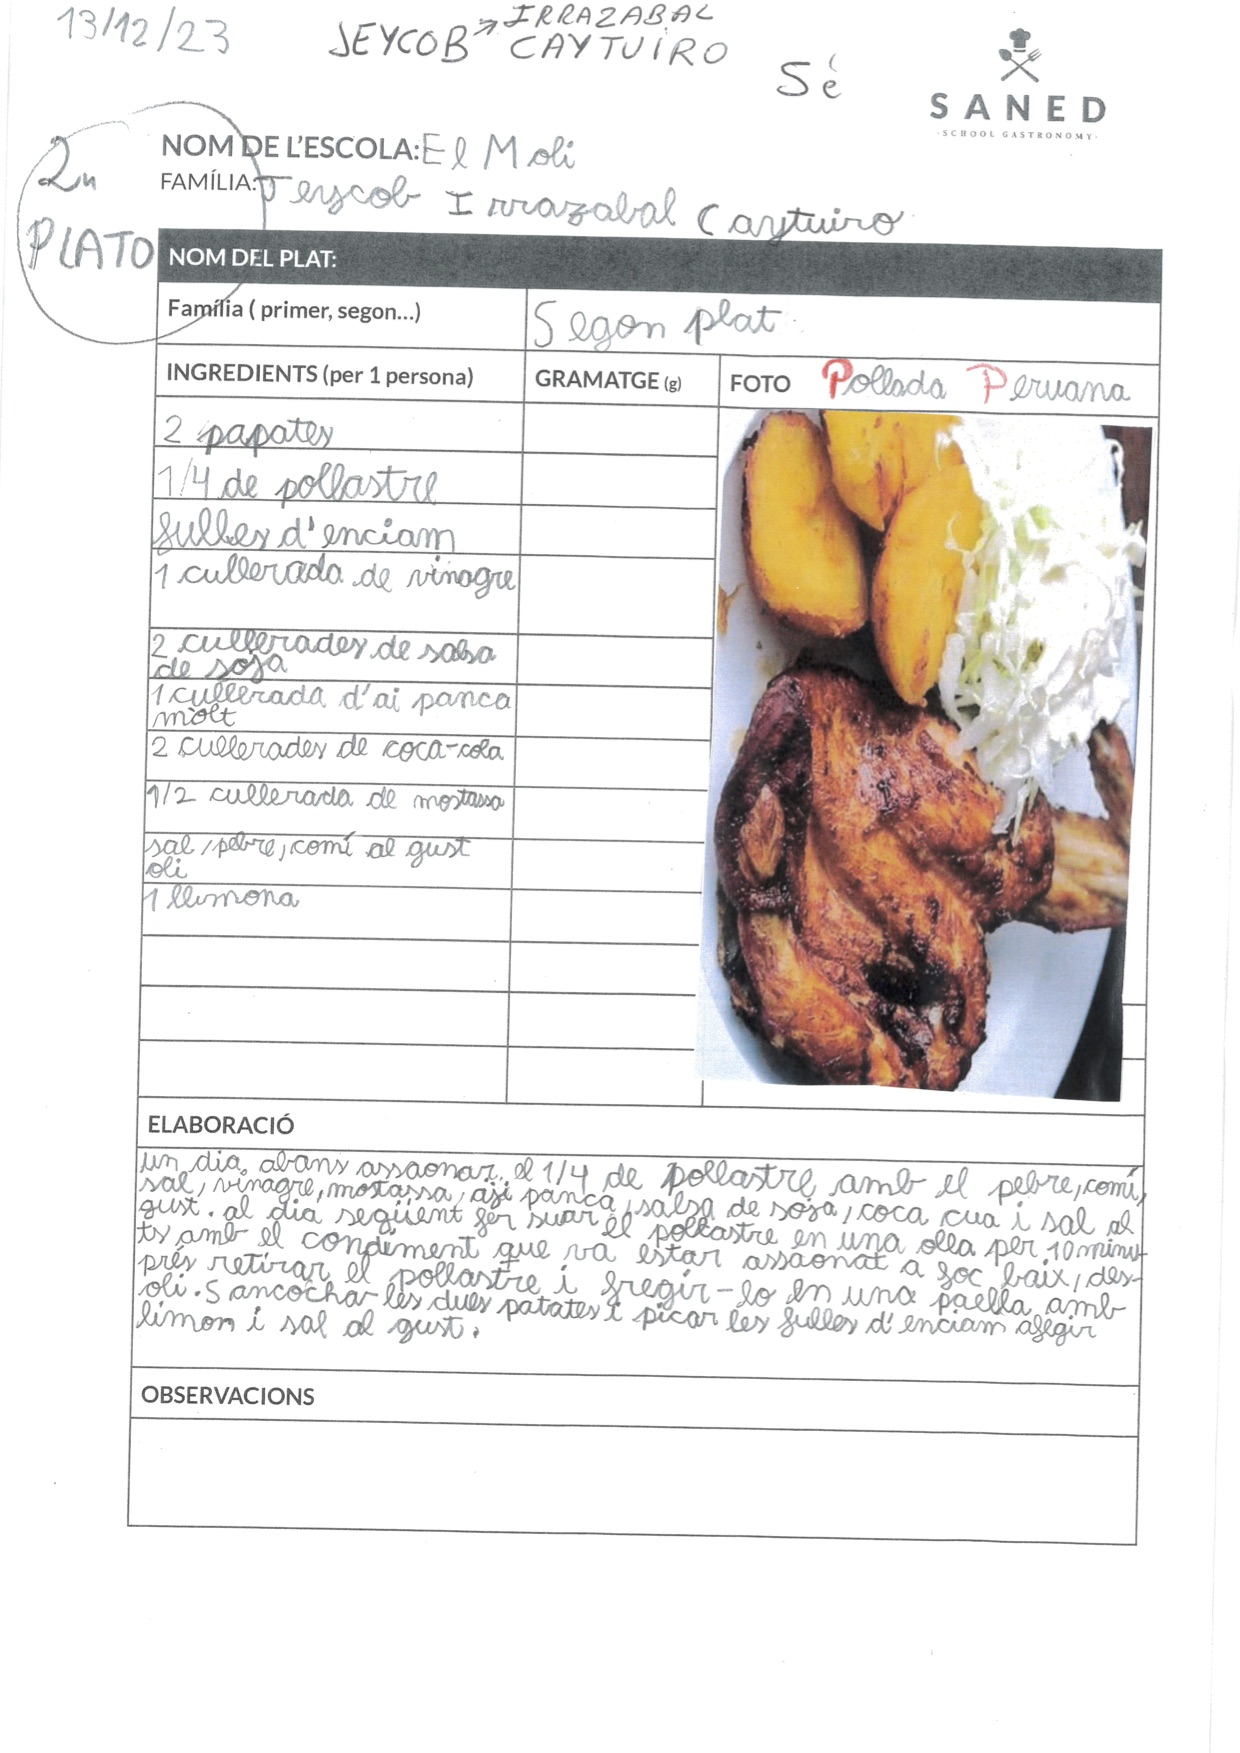 13/12/23
JEYCOB → IRRAZABAL
CAYTUIRO
5è
SANED
·SCHOOL GASTRONOMY·
2n
PLATO
NOM DE L'ESCOLA: El Moli
FAMÍLIA: Jeycob Irrazabal Caytuiro
NOM DEL PLAT:
Família ( primer, segon...) Segon plat
INGREDIENTS (per 1 persona) GRAMATGE (g) FOTO Pollada Peruana
2 papates
1/4 de pollastre
fulles d'enciam
1 cullerada de vinagre
2 cullerades de salsa
de soja
1 cullerada d'ai panca
mòlt
2 cullerades de coca-cola
1/2 cullerada de mostassa
sal, pebre, comí al gust
oli
1 llimona
ELABORACIÓ
un dia abans assaonar el 1/4 de pollastre amb el pebre, comí,
sal, vinagre, mostassa, aji panca, salsa de soja, coca cua i sal al
gust. al dia següent fer suar el pollastre en una olla per 10 minu-
ts amb el condiment que va estar assaonat a foc baix, des-
prés retirar el pollastre i fregir-lo en una paella amb
oli. Sancochar les dues patates i picar les fulles d'enciam afegir
limon i sal al gust.
OBSERVACIONS